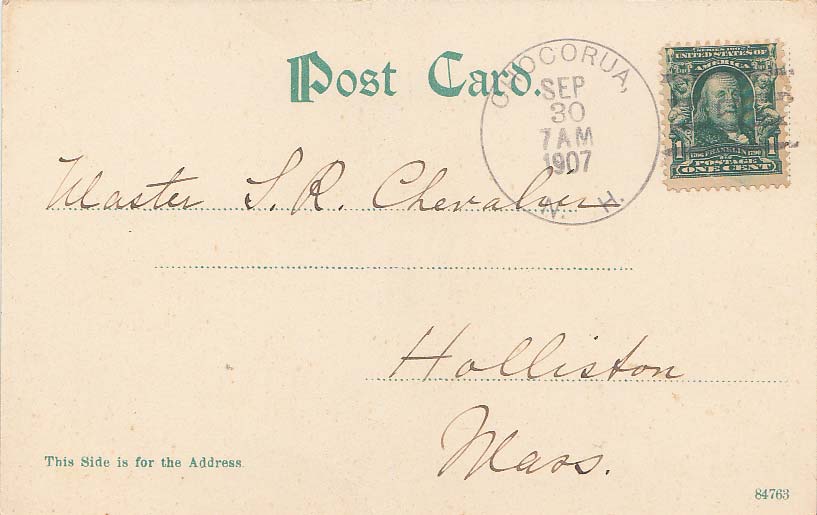 Post Card.
CHOCORUA,
SEP
30
7 AM
1907
N. H.
SERIES 1902
UNITED STATES OF
AMERICA
1 FRANKLIN 1
POSTAGE
ONE CENT
Master S. R. Chevalier
Holliston
Mass.
This Side is for the Address
84763